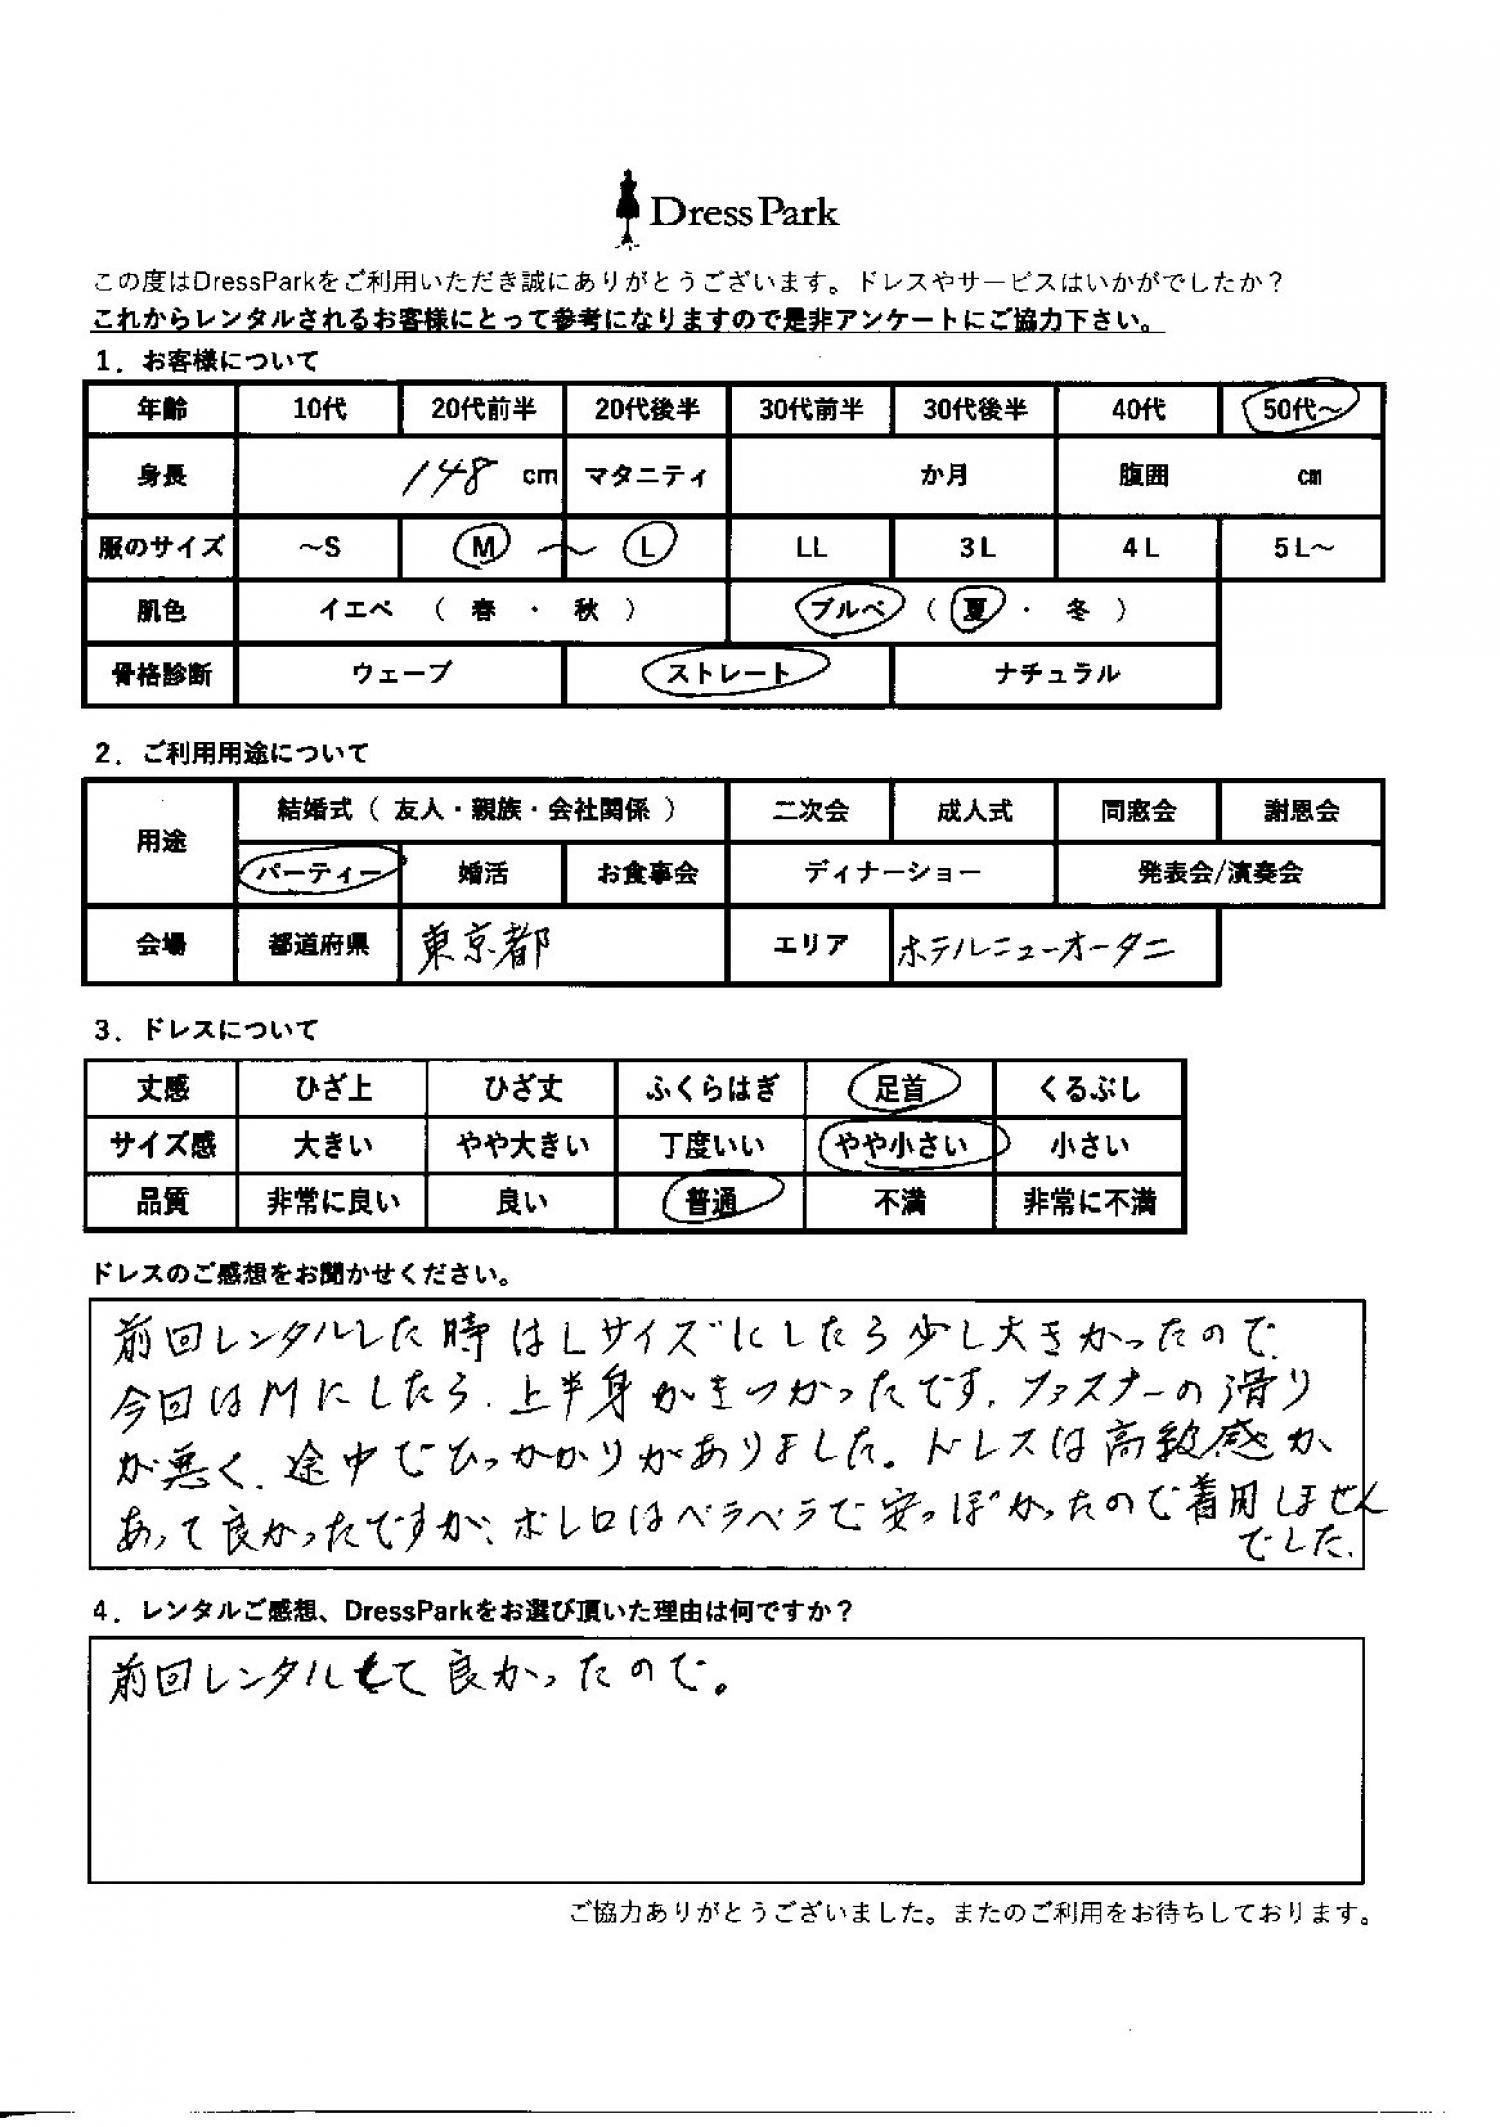 DressPark
この度はDressParkをご利用いただき誠にありがとうございます。ドレスやサービスはいかがでしたか？
これからレンタルされるお客様にとって参考になりますので是非アンケートにご協力下さい。
1．お客様について
年齢 10代 20代前半 20代後半 30代前半 30代後半 40代 50代～
身長 148 cm マタニティ か月 腹囲 cm
服のサイズ ～S M ～ L LL 3L 4L 5L～
肌色 イエベ （ 春 ・ 秋 ） ブルベ （ 夏 ・ 冬 ）
骨格診断 ウェーブ ストレート ナチュラル
2．ご利用用途について
用途 結婚式（ 友人・親族・会社関係 ） 二次会 成人式 同窓会 謝恩会
パーティー 婚活 お食事会 ディナーショー 発表会/演奏会
会場 都道府県 東京都 エリア ホテルニューオータニ
3．ドレスについて
丈感 ひざ上 ひざ丈 ふくらはぎ 足首 くるぶし
サイズ感 大きい やや大きい 丁度いい やや小さい 小さい
品質 非常に良い 良い 普通 不満 非常に不満
ドレスのご感想をお聞かせください。
前回レンタルした時はLサイズにしたら少し大きかったので、
今回はMにしたら、上半身がきつかったです。ファスナーの滑り
が悪く、途中でひっかかりがありました。ドレスは高級感が
あって良かったですが、ボレロはペラペラで安っぽかったので着用しません
でした。
4．レンタルご感想、DressParkをお選び頂いた理由は何ですか？
前回レンタルして良かったので。
ご協力ありがとうございました。またのご利用をお待ちしております。